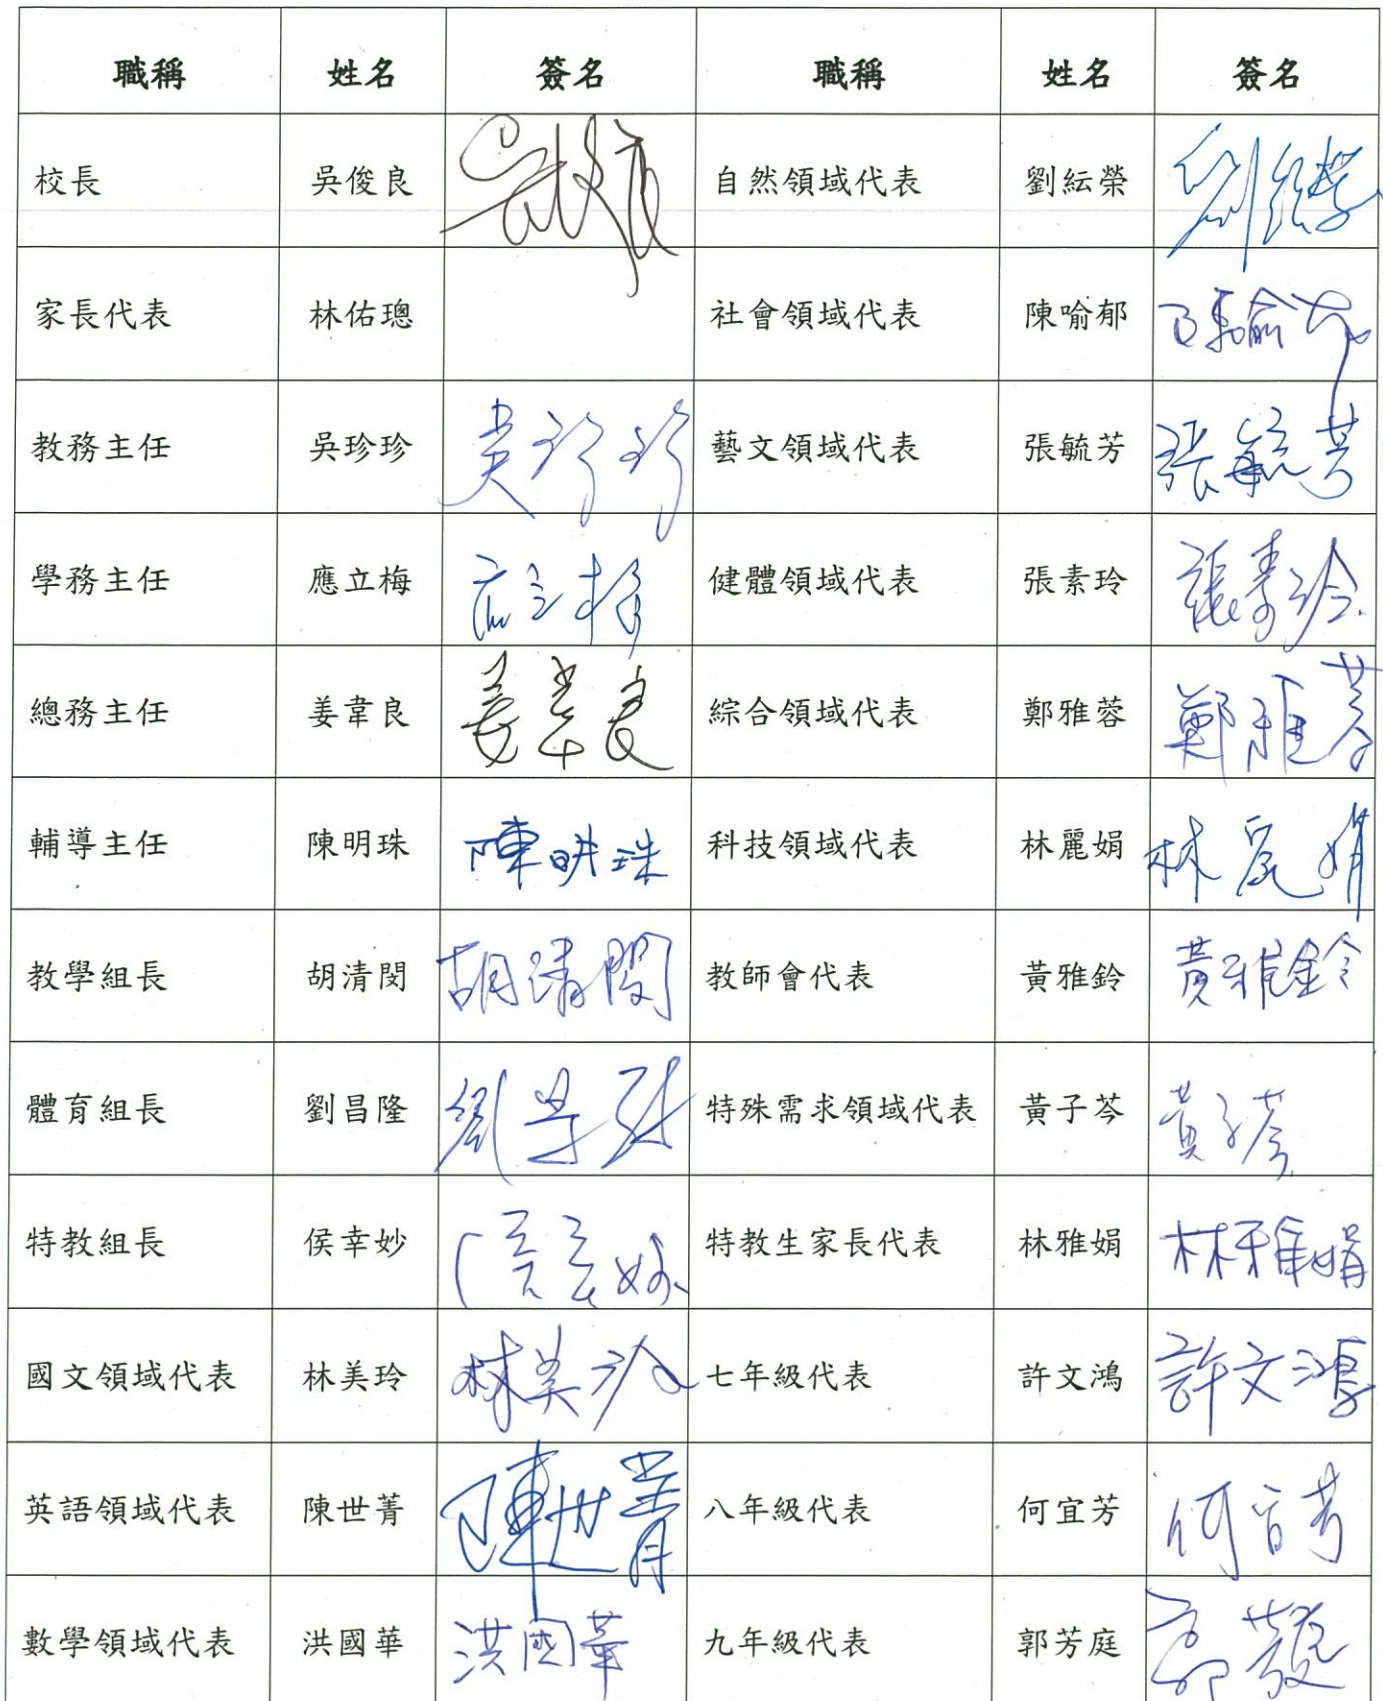 職稱 姓名 簽名 職稱 姓名 簽名
校長 吳俊良 自然領域代表 劉紜榮
家長代表 林佑璁 社會領域代表 陳喻郁 陳喻郁
教務主任 吳珍珍 吳珍珍 藝文領域代表 張毓芳 張毓芳
學務主任 應立梅 應立梅 健體領域代表 張素玲 張素玲
總務主任 姜韋良 姜韋良 綜合領域代表 鄭雅蓉 鄭雅蓉
輔導主任 陳明珠 陳明珠 科技領域代表 林麗娟 林麗娟
教學組長 胡清閔 胡清閔 教師會代表 黃雅鈴 黃雅鈴
體育組長 劉昌隆 劉昌隆 特殊需求領域代表 黃子芩 黃子芩
特教組長 侯幸妙 侯幸妙 特教生家長代表 林雅娟 林雅娟
國文領域代表 林美玲 林美玲 七年級代表 許文鴻 許文鴻
英語領域代表 陳世菁 陳世菁 八年級代表 何宜芳 何宜芳
數學領域代表 洪國華 洪國華 九年級代表 郭芳庭